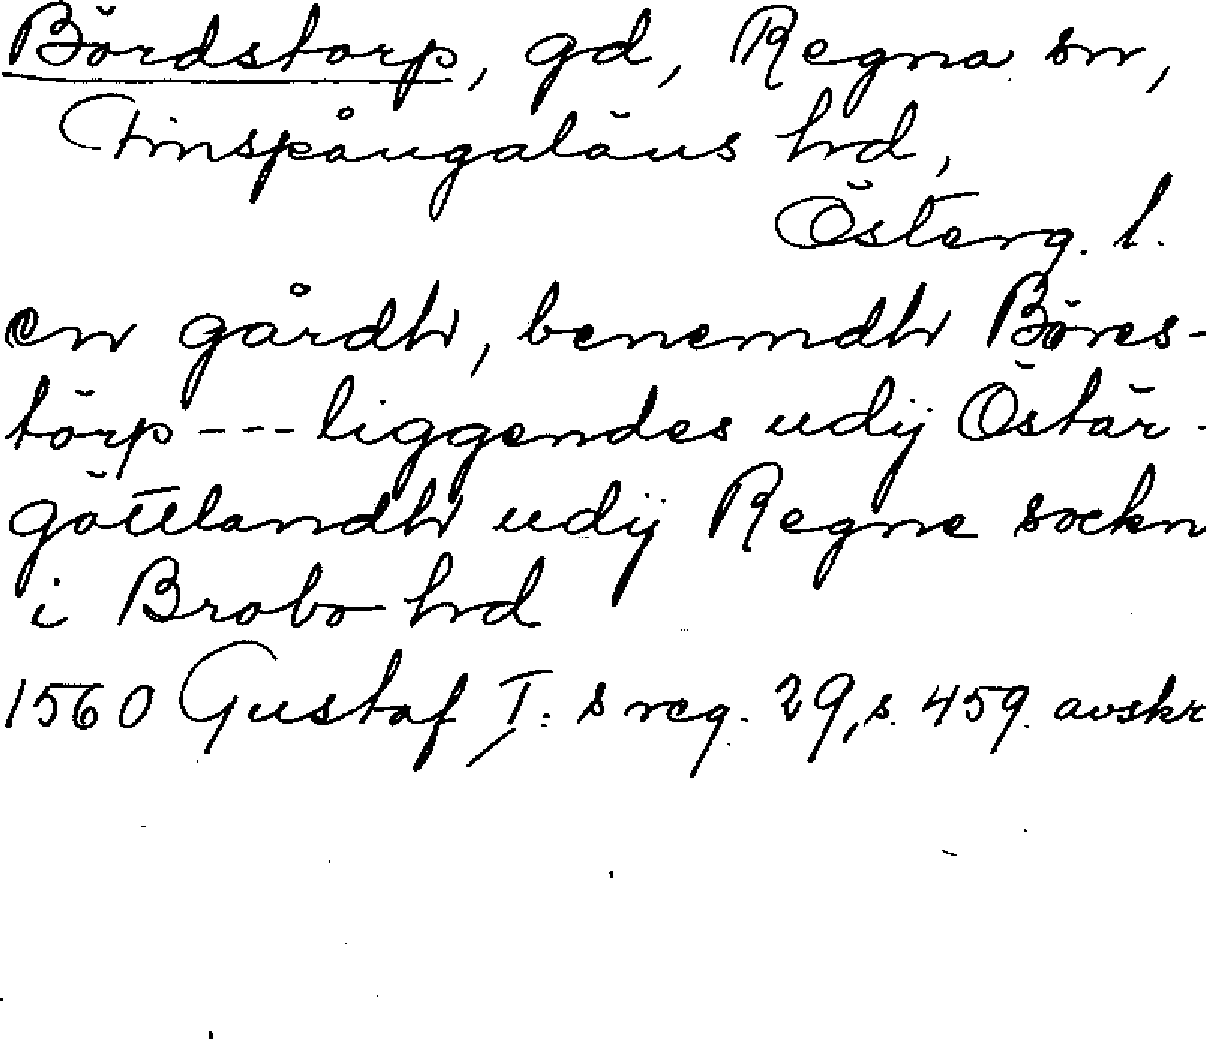 Bördstorp, gd, Regna sn,
Finspångaläns hd,
Österg. l.
en gårdh, benemdh Böres-
törp --- liggendes udij Östär-
göttlandh udij Regne sockn
i Brobo hd
1560 Gustaf I:s reg. 29, s. 459. avskr